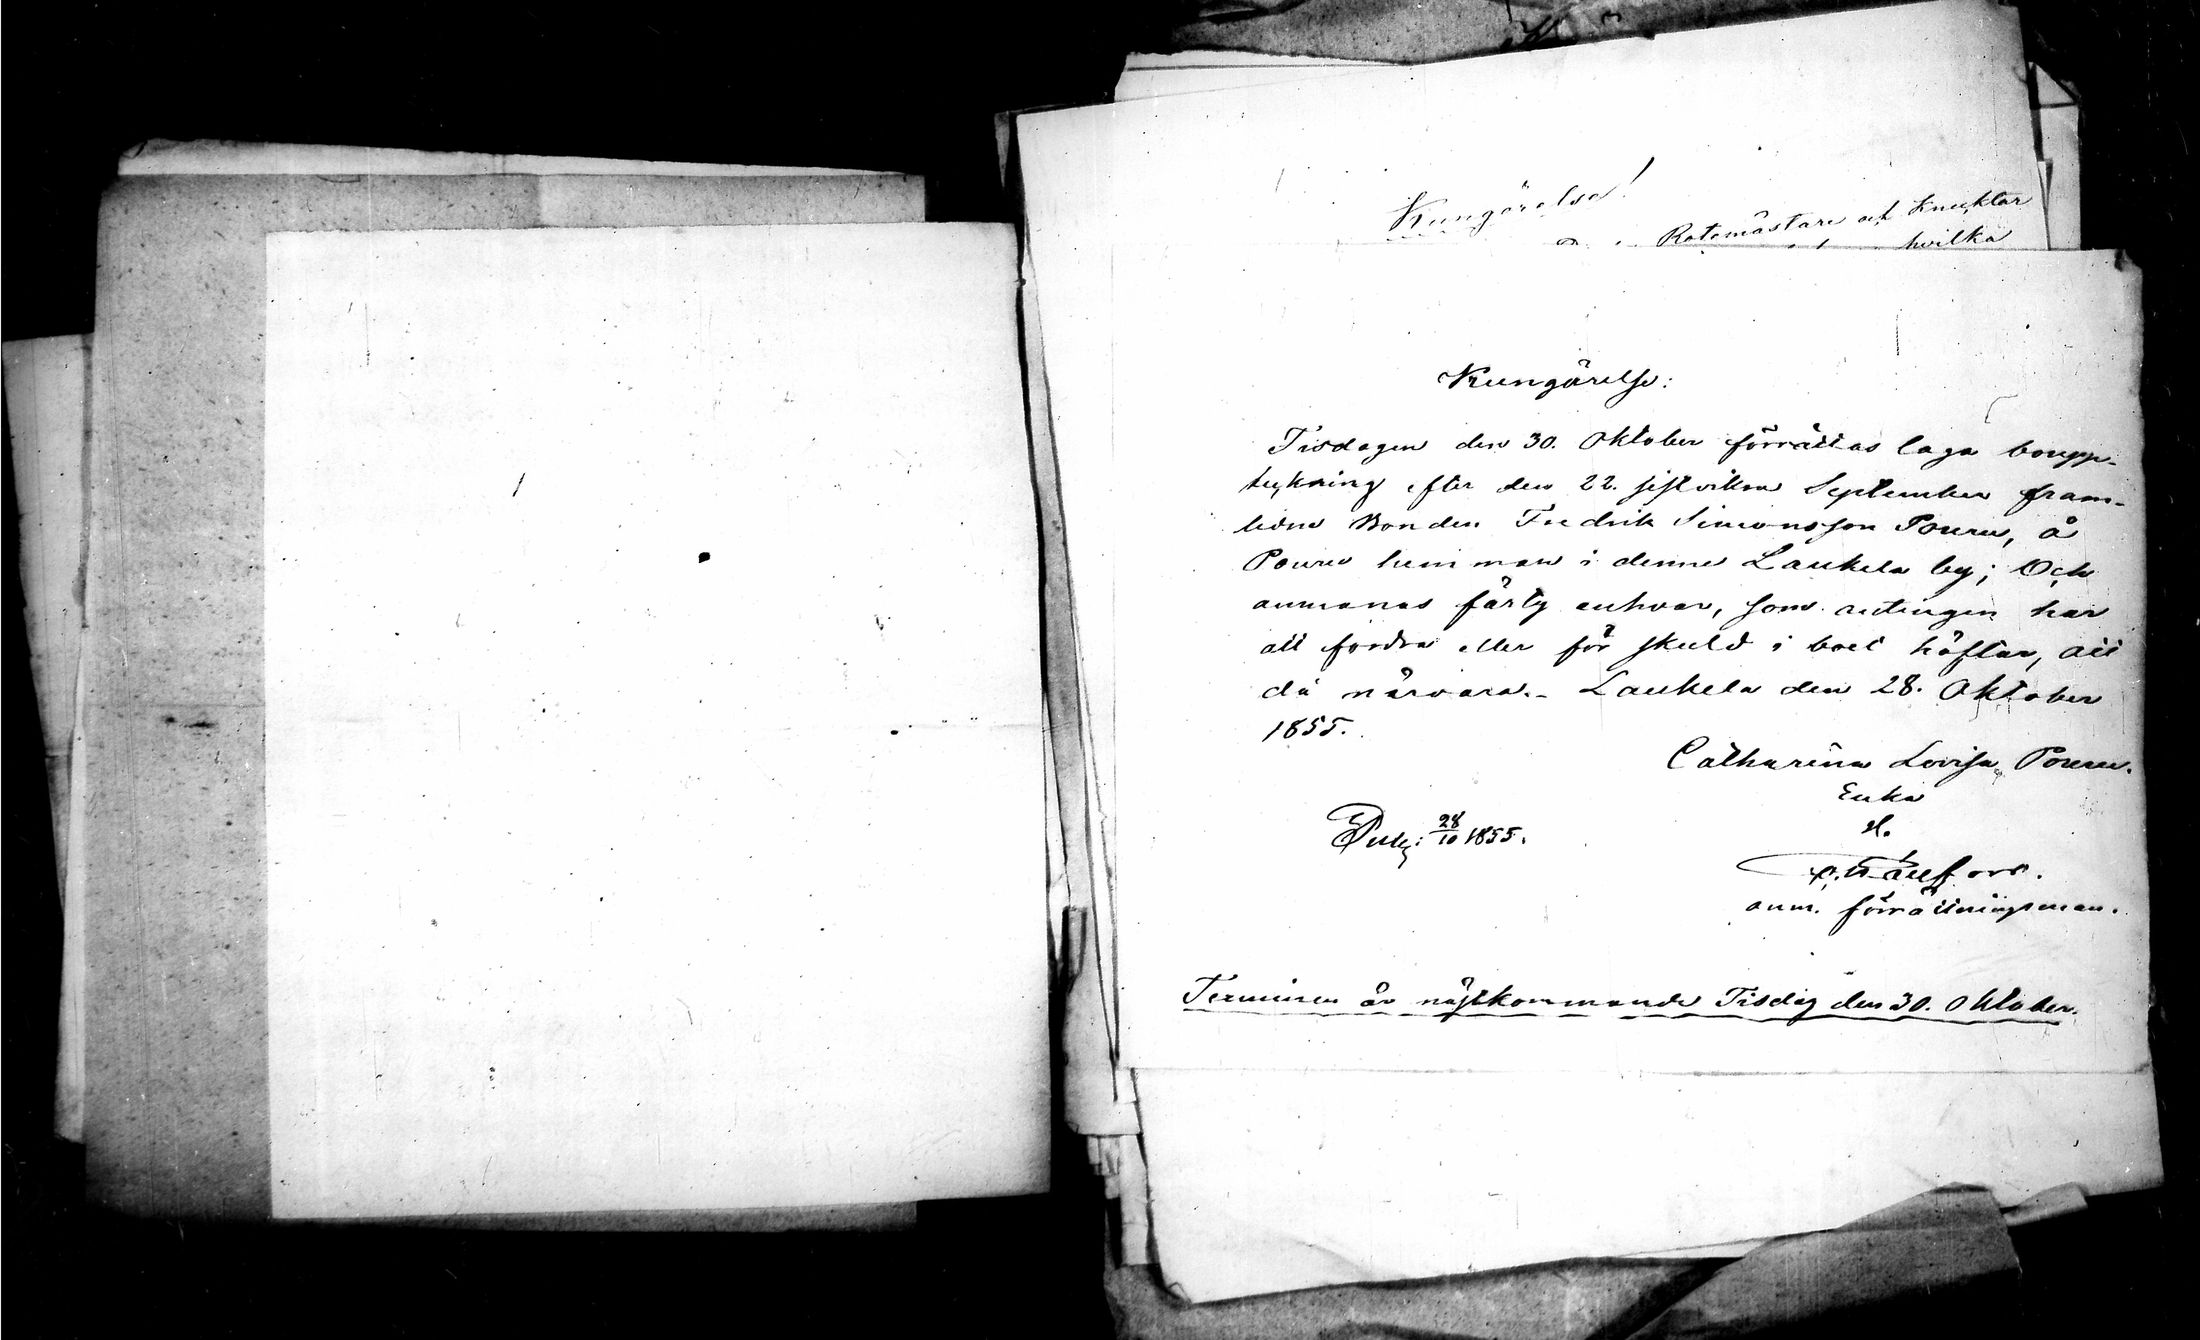 Kungörelse!
Rotemästare och Knecktar
hvilka
Kungörelse:
Tisdagen den 30. Oktober förrättas laga boupp-
teckning efter den 22. sistvikne September fram-
lidne Bonden Fredrik Simonsson Pouru, å
Pouru hemman i denne Laukela by; Och
anmanas härtill enhvar, som antingen har
att fordra eller för skuld i boet häftar, att
då närvara. - Laukela den 28. Oktober
1855.
Catharina Lovisa Pouru.
Enka
28/10 1855.
anm. förrättningsman.
Terminen är nästkommande Tisdag den 30. Oktober.